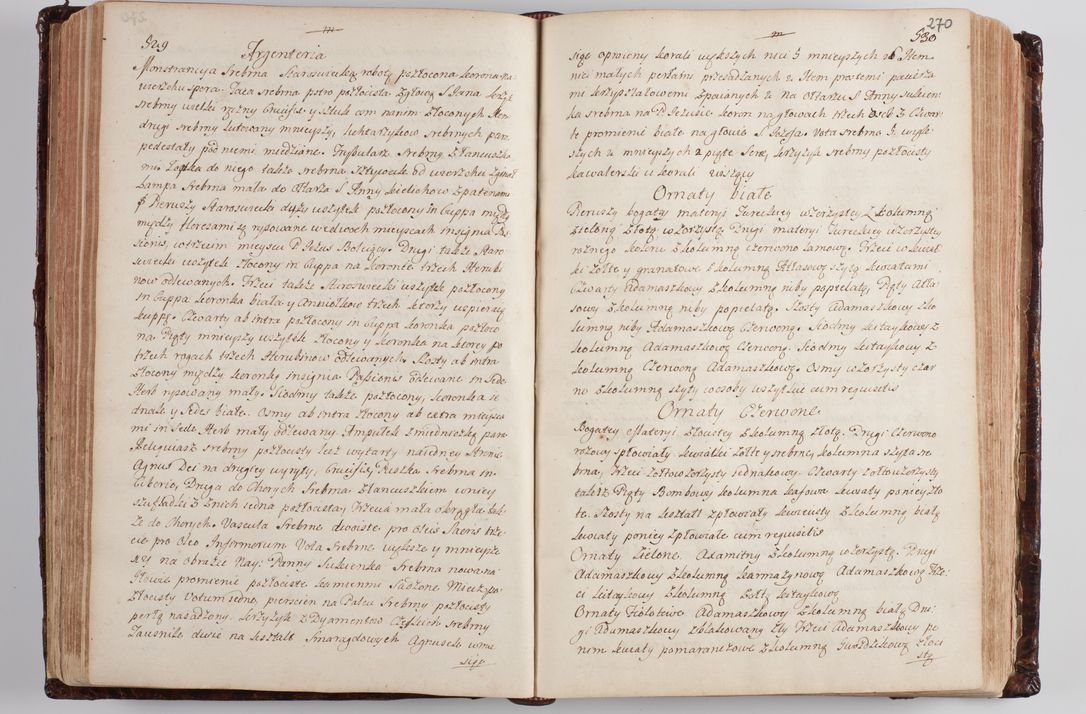 529
Argenteria
Monstrancyja Srebrna Starosiwecką roboty pozłocona korona na
wierzchu spora. Taca Srebrna pstro pozłocista
srebrny wielki ryżny Crucifix y Sztuk
drugi srebrny lutowany mnieyszy, lichtarzykow srebrnych para
pedestały pod niemi miedziane. Turybularz Srebrny z łancuszka
mi Łopka do niego także Srebrna
Lampa Srebrna mała do Ołtarza S. Anny kielichow z patenami
Pierwszy Starosiwecki duży wszytek pozłocony in Cuppa między
między floresami są rysowane w dwoch mieyscach insignia Pas
sionis, w trzecim mieyscu P. Jezus Boleiący. Drugi także Staro
siwecki wszytek złocony in Cuppa na koronce trzech Herubi
now odlewanych. Trzeci także Starosiwecki wszytek pozłocony
in Cuppa koronka biała y Aniołkow trzech ktorzy wspieraią
kuppę. Czwarty ab intra pozłocony in Cuppa koronka pozłoco
na. Piąty mnieyszy wszytek złocony y koronka na ktorey po
trzech rogach trzech Herubinow odlewanych. Szosty ab intra
złocony między koronką insignia Passionis odlewane in Sede
Herb rysowany mały. Siodmy także pozłocony, koronka se
dnak y Sedes białe. Osmy ab intra złocony ab extra mieysca
mi in Sede Herb mały odlewany Ampułek z miedniczką para
Relliquiarz srebrny pozłocisty lecz wytarty na iedney stronie
Agnus Dei na drugiey wyryty, Crucifix, Puszka Srebrna in
Ciborio, Druga do Chorych Srebrna z łancuszkiem w niey
szufladki z dnich iedna pozłocista, Trzecia mała okrągła tak
że do Chorych. Vascula Srebrne dwoiste pro Oleis Sacris trze
cie pro Oleo Infirmorum Vota Srebrne większe y mnieysze
na obrazie Nay: Panny Sukienka Srebrna nowa na
głowie promienie pozłociste kamienmi sadzone Miecz po
złocisty Votum iedno, pierscien na Palcu Srebrny pozłocisty
perłą nasadzony. Krzyzyk z Dyamentow Czeskich srebrny
Zausznice dwie na kształt Smaragdowych Agnusek w
270
530
sięc oprawny korali większych nici 5 mnieyszych 26 Item
nici małych perłami przesadzanych 2 Item prostemi pacierza
mi krzyształowemi spaianych 2 na Ołtarzu S. Anny Sukien
ka srebrna na P. Jezusie koron na głowach trzech Osob 3 Czwar
te promienie białe na głowie S. Jozefa. Vota srebrna 5. więk
szych 2 mnieyszych 2 piąte Serc, krzyżyk srebrny pozłocisty
kawalerski w korali wiszący
Ornaty białe
Pierwszy bogaty materyi Tureckiey wzorzystey z kolumną
zieloną złotą wzorzystą Drugi materyi Tureckiey wzorzystey
rożnego koloru z kolumną czerwono lamową. Trzeci w kwiat
ki żołte y granatowe z kolumną Atłasową szytą kwiatami
Czwarty Adamaszkowy z kolumną niby popielatą, Piąty Atła
sowy z kolumną niby popielatą. Szosty Adamaszkowy z ko
lumną niby Adamaszkową Czerwoną. Siodmy kitaykowy z
kolumną Adamaszkową Czerwoną. Siodmy kitaykowy z
kolumną Czerwoną Adamaszkową. Osmy wzorzysty czar
no z kolumną szyty wszytkie cum requisitis
Ornaty Czerwone.
Bogatey Materyi złocistey z kolumną złotą. Drugi Czerwono
rożowy spłowiały kwiatki żołte y srebrne, kolumna szyta sre
brna, Trzeci żołtowzorzysty jednakowy. Czwarty żołtowzorzysty
także Piąty Bombowy kolumna kafowa kwiaty poniey żło
te. Szosty na kształt spłowiały kwiecisty z kolumną białą
kwiaty poniey spłowiałe cum requisitis
Ornaty Zielone. Adamitny z kolumną wzorzystą. Drugi
Adamaszkowy z kolumną karmazynową Adamaszkową Trze
ci kitaykowy z kolumną żołtą kitaykową
Ornaty Fioletowe Adamaszkowy z kolumną białą Dru
gi Adamaszkowy zblakowany zły Trzeci Adamaszkowy pe
nem kwiaty pomaranczowe z kolumną Gwoździkową złoci
stą